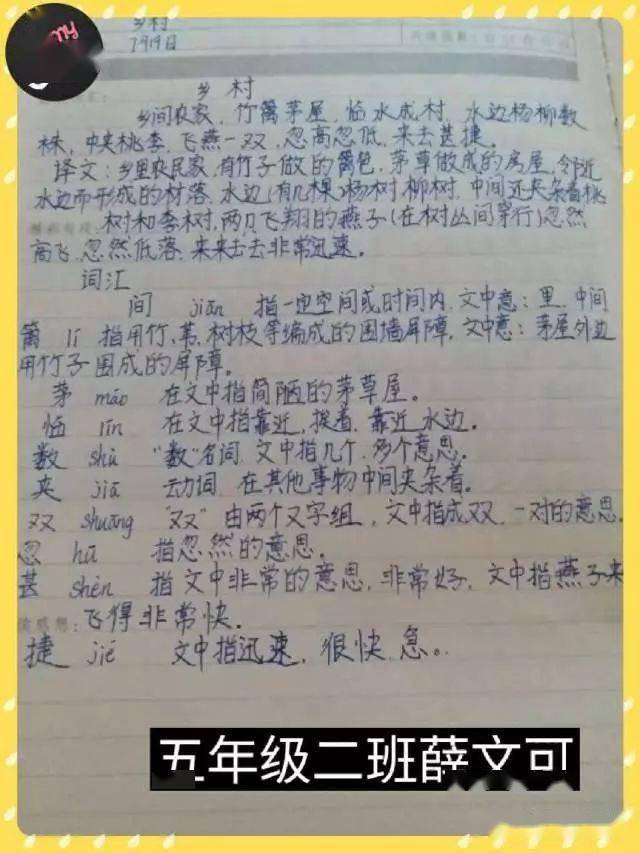 ny
乡村
7月19日
乡 村
乡间农家，竹篱茅屋，临水成村，水边杨柳数
株，中夹桃李，飞燕一双，忽高忽低，来去甚捷。
译文：乡里农民家，有竹子做的篱笆，茅草做成的房屋，邻近
水边而形成的村落，水边(有几棵)杨树，柳树，中间还夹杂着桃
树和李树，两只飞翔的燕子(在树丛间穿行)忽然
高飞，忽然低落，来来去去非常迅速。
词汇
间 jiān 指一定空间或时间内，文中意：里，中间
篱 lí 指用竹，苇，树枝等编成的围墙屏障，文中意：茅屋外边
用竹子围成的屏障。
茅 máo 在文中指简陋的茅草屋。
临 lín 在文中指靠近，挨着，靠近水边。
数 shù “数”名词，文中指几个，多个意思。
夹 jiā 动词，在其他事物中间夹杂着。
双 shuāng “双”由两个又字组，文中指成双，一对的意思。
忽 hū 指忽然的意思。
甚 shèn 指文中非常的意思，非常好，文中指燕子来
飞得非常快。
捷 jié 文中指迅速，很快，急。
五年级二班薛文可